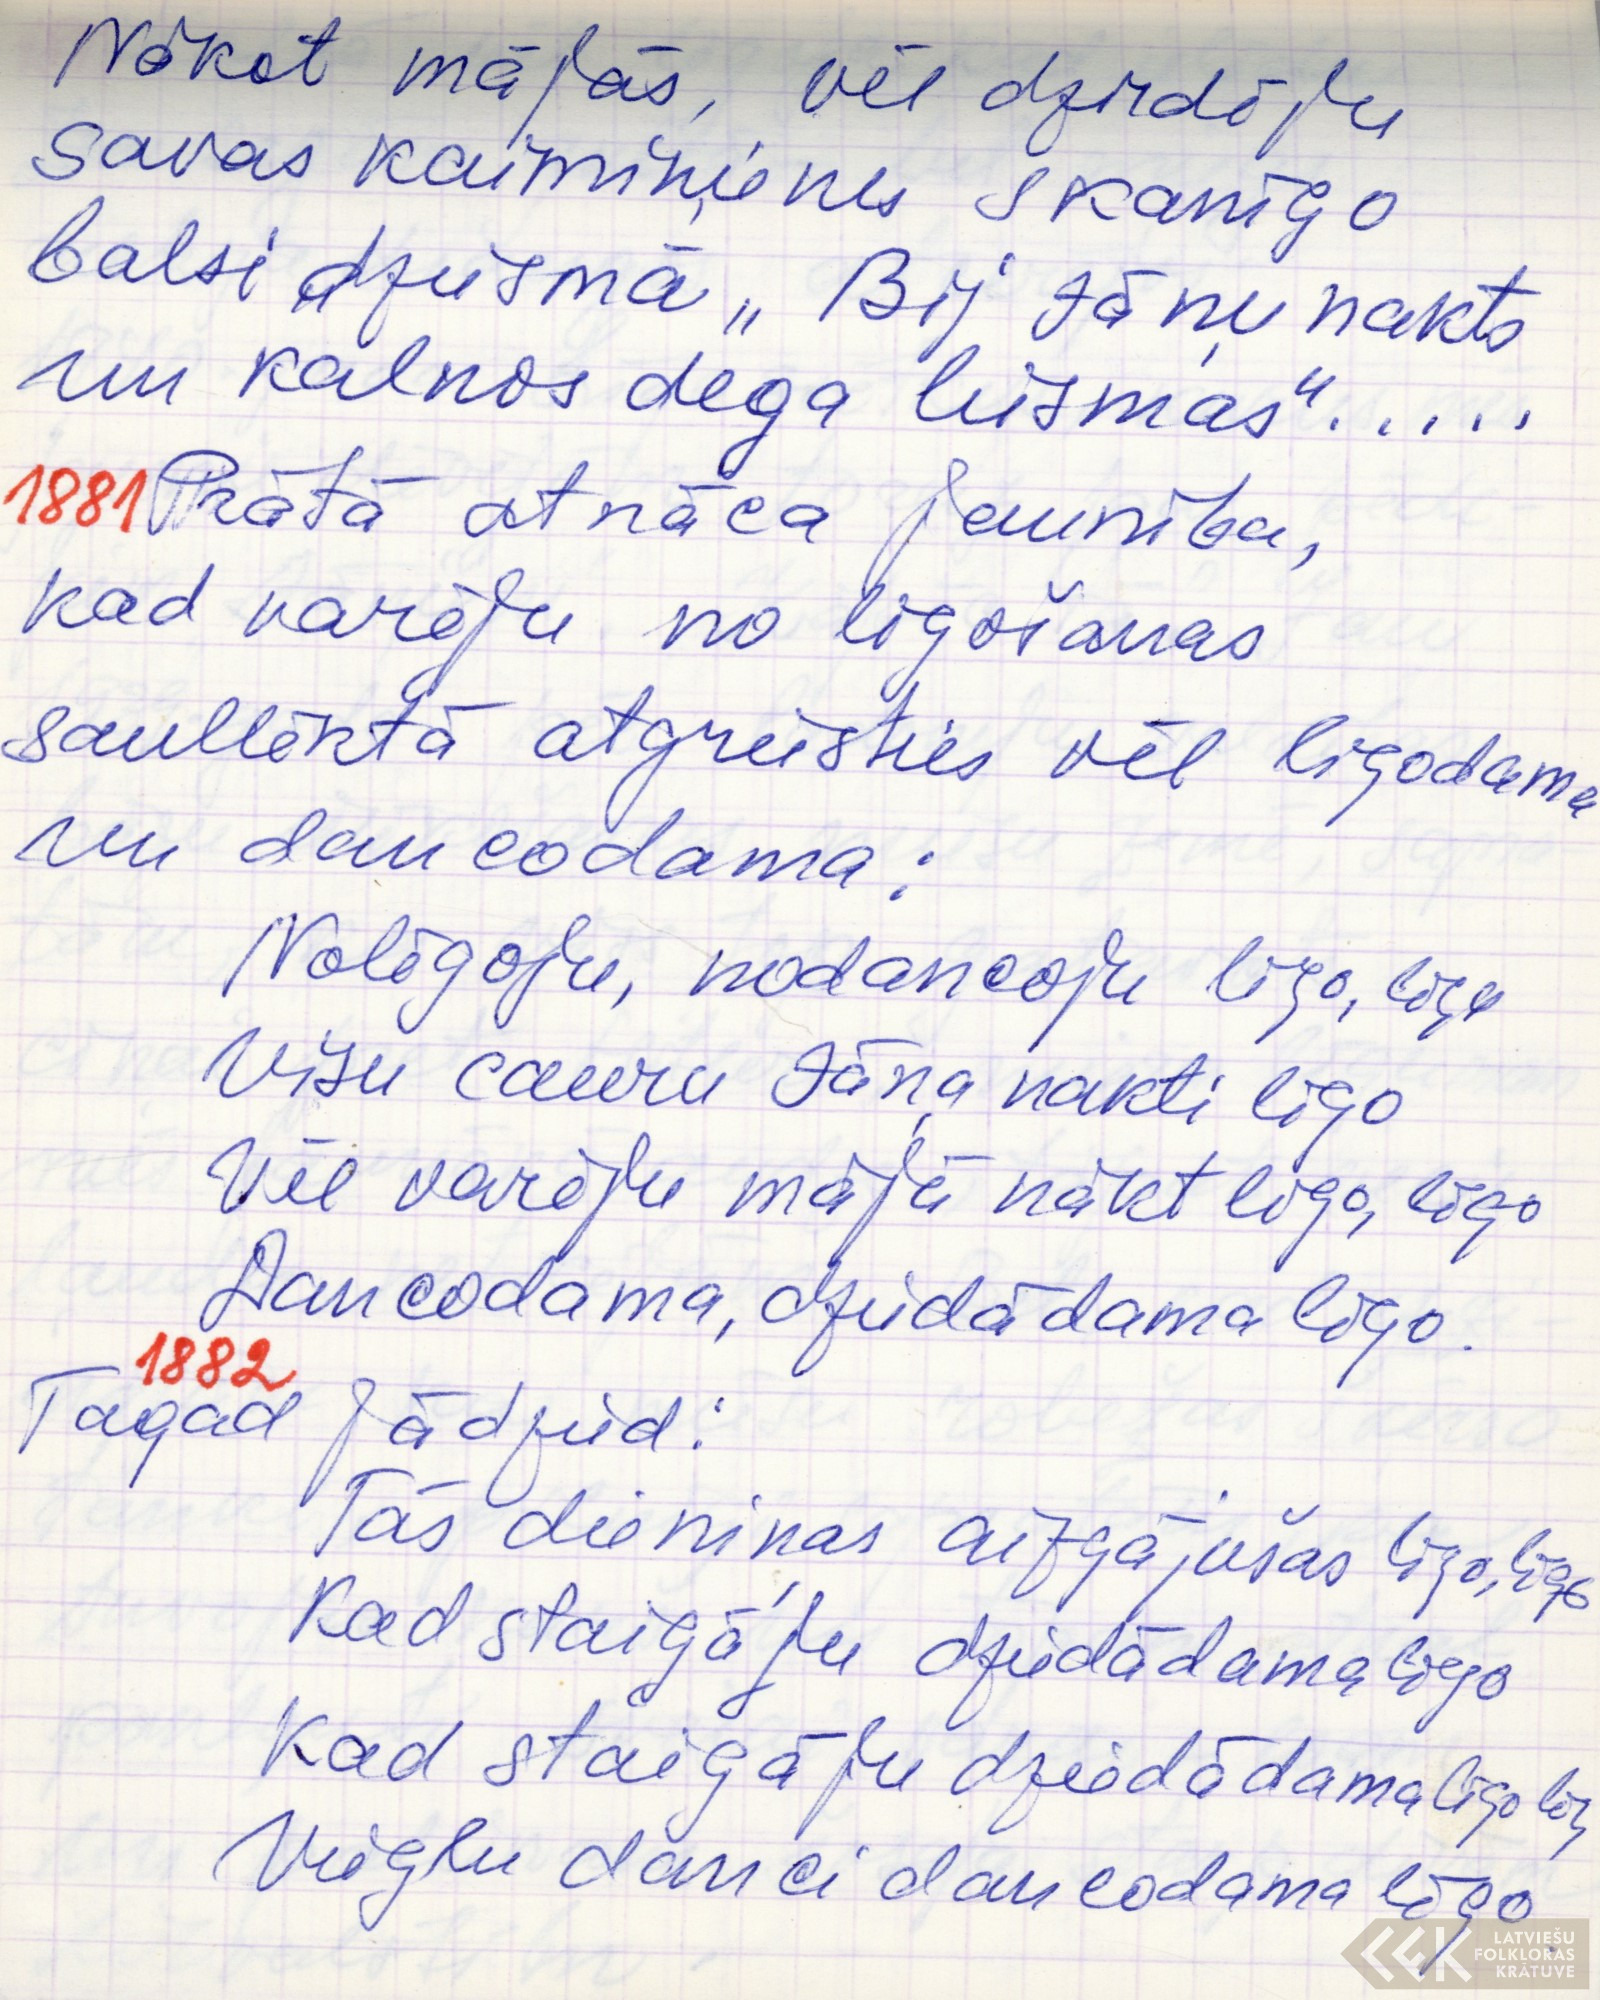 Nākot mājās, vēl dzirdēju
savas kaimiņienes skanīgo
balsi dziesmā „Bij' Jāņu nakts
un kalnos dega liesmas".....
1881 Prātā atnāca jaunība,
kad varēju no līgošanas
saullēktā atgriezties vēl līgodama
un dancodama:
Nolīgoju, nodancoju līgo, līgo
Visu cauru Jāņa nakti līgo
Vēl varēju mājā nākt līgo, līgo
Dancodama, dziedādama līgo.
1882
Tagad jādzied:
Tās dieniņas aizgājušas līgo, līgo
Kad staigāju dziedādama līgo
Kad staigāju dziedādama līgo līg
Vieglu danci dancodama līgo
LATVIEŠU
FOLKLORAS
KRĀTUVE